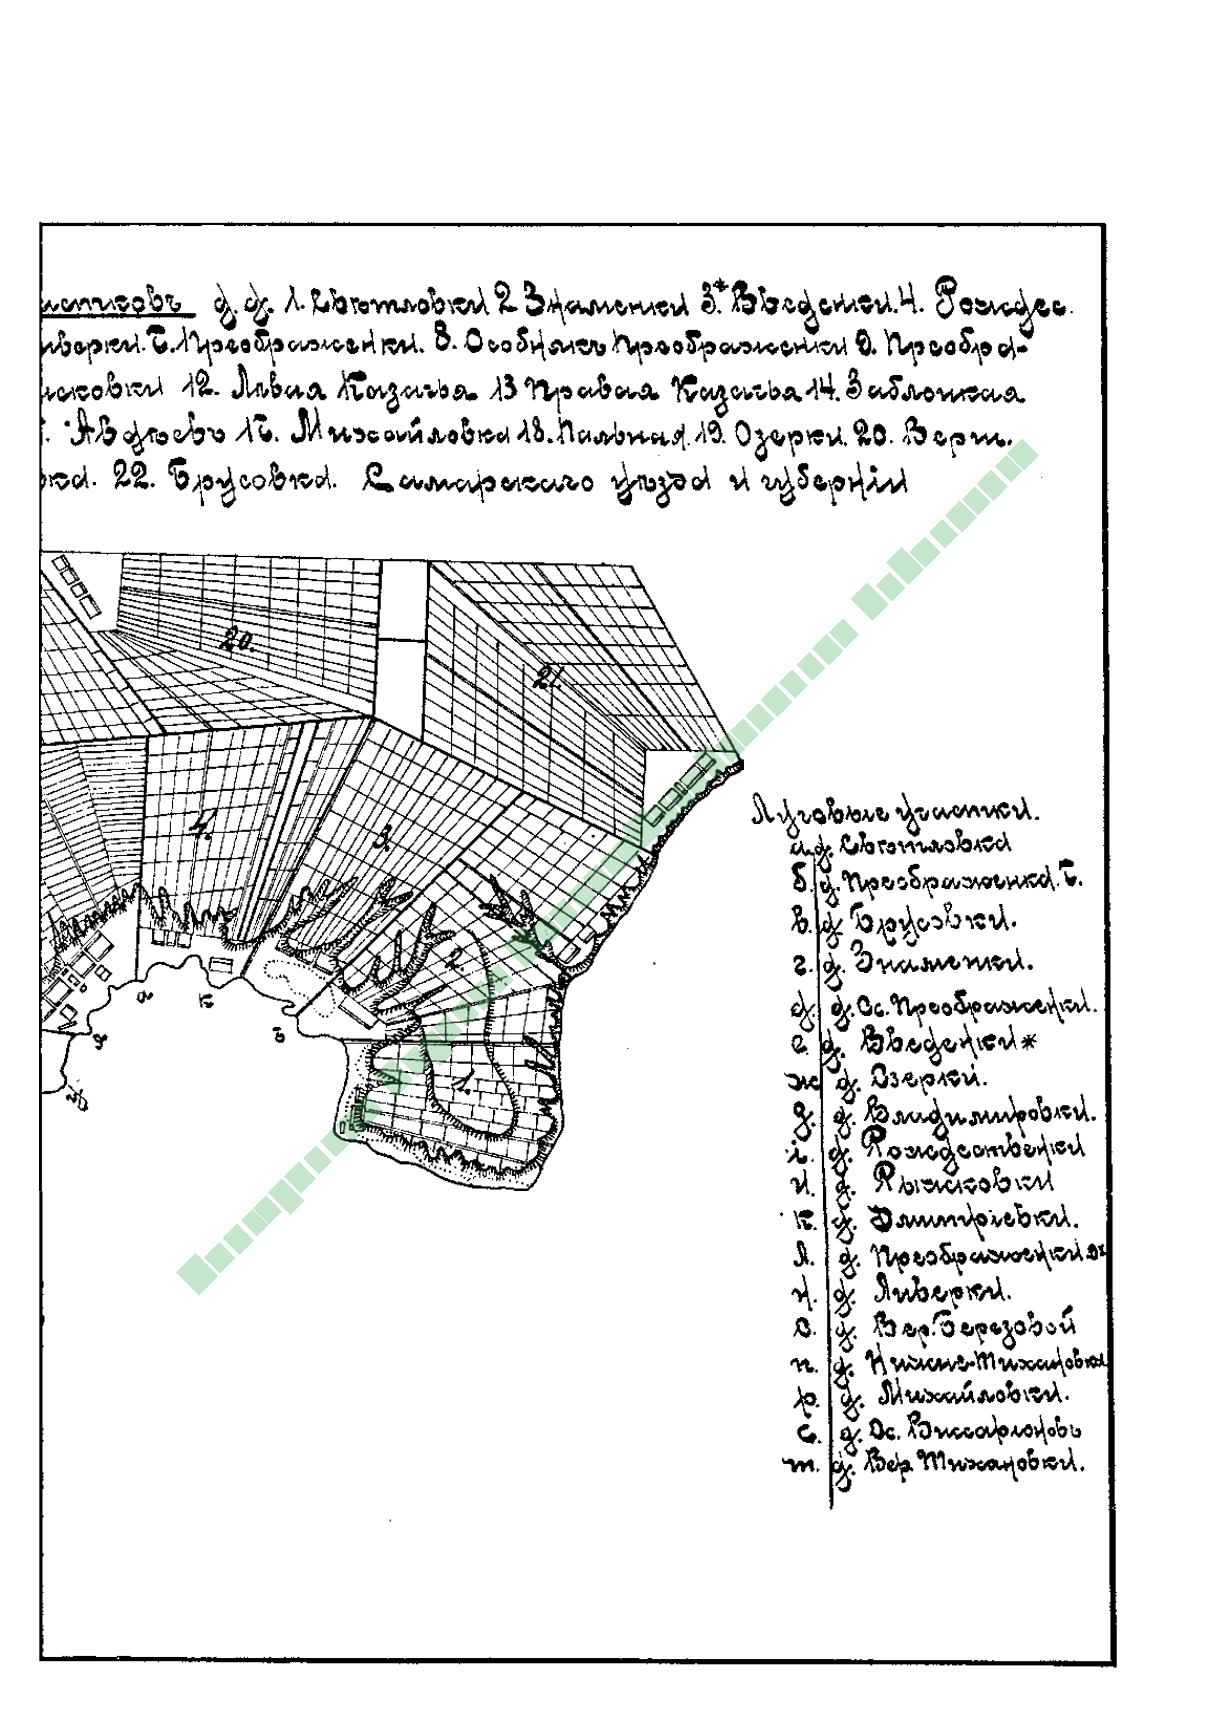 истковъ д.д. 1. Свѣтловки 2 Знаменки 3.* Введенки. 4. Рождес.
иверки. 7. Преображенки. 8. Особнякъ Преображенки 9. Преобра-
исковки 12. Лѣвая Казачья 13 Правая Казачья 14. Заблоцкая
Авдѣевъ 17. Михайловка 18. Пальная. 19. Озерки. 20. Верш.
вка. 22. Брусовка. Самарскаго уѣзда и губерніи
20.
21.
4.
3.
2.
1.
а к б
д
Луговые участки.
а. д. Свѣтловка
б. д. Преображенка. 7.
в. д. Брусовки.
г. д. Знаменки.
д. д. Ос. Преображенки.
е. д. Введенки *
ж д. Озерки.
з. д. Владимировки.
і. д. Рождественки
и. д. Рыжковки
к. д. Дмитріевки.
л. д. Преображенки
н. д. Яиверки.
о. д. Вер. Березовой
п. д. Нижне-Тихановки
р. д. Михайловки.
с. д. Ос. Виссаріоновъ
т. д. Вер. Тихановки.